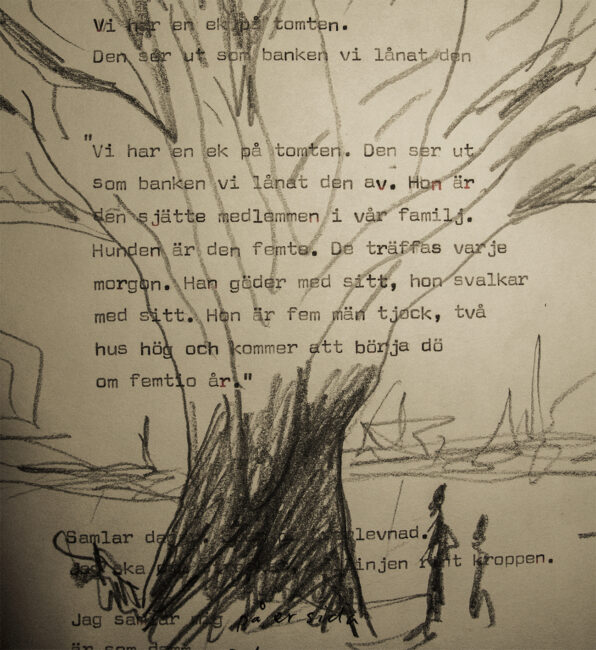 Vi har en ek på tomten.
Den ser ut som banken vi lånat den
"Vi har en ek på tomten. Den ser ut
som banken vi lånat den av. Hon är
den sjätte medlemmen i vår familj.
Hunden är den femte. De träffas varje
morgon. Han göder med sitt, hon svalkar
med sitt. Hon är fem män tjock, två
hus hög och kommer att börja dö
om femtio år."
Samlar levnad.
ska linjen runt kroppen.
Jag samlar mig på er sida
är som damm